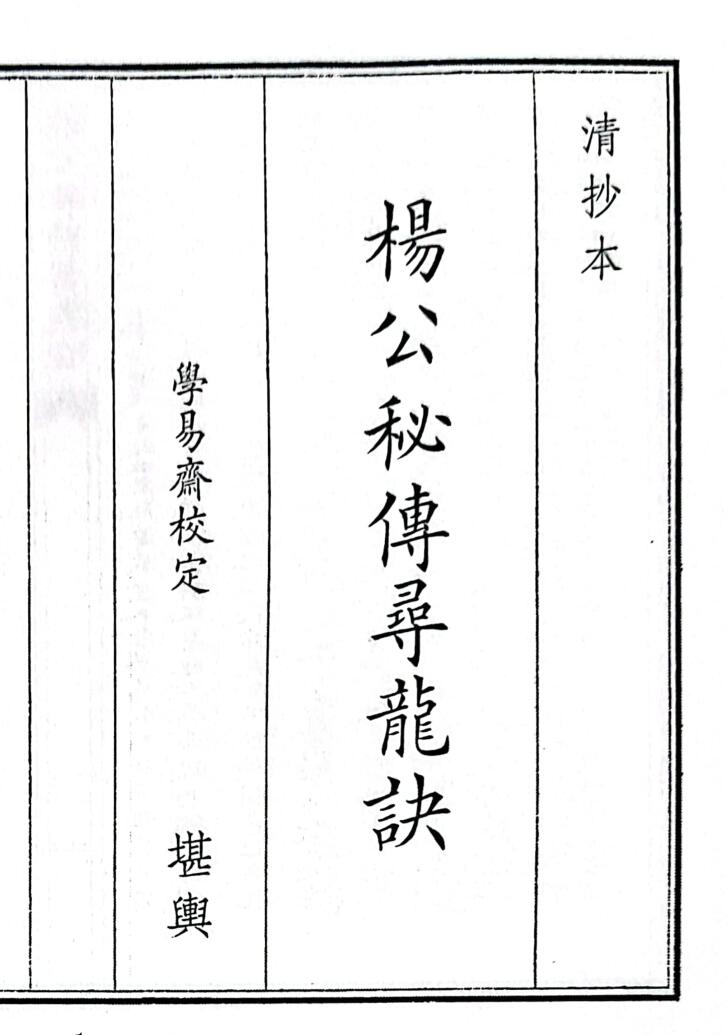 清抄本
楊公秘傳尋龍訣
學易齋校定 堪輿